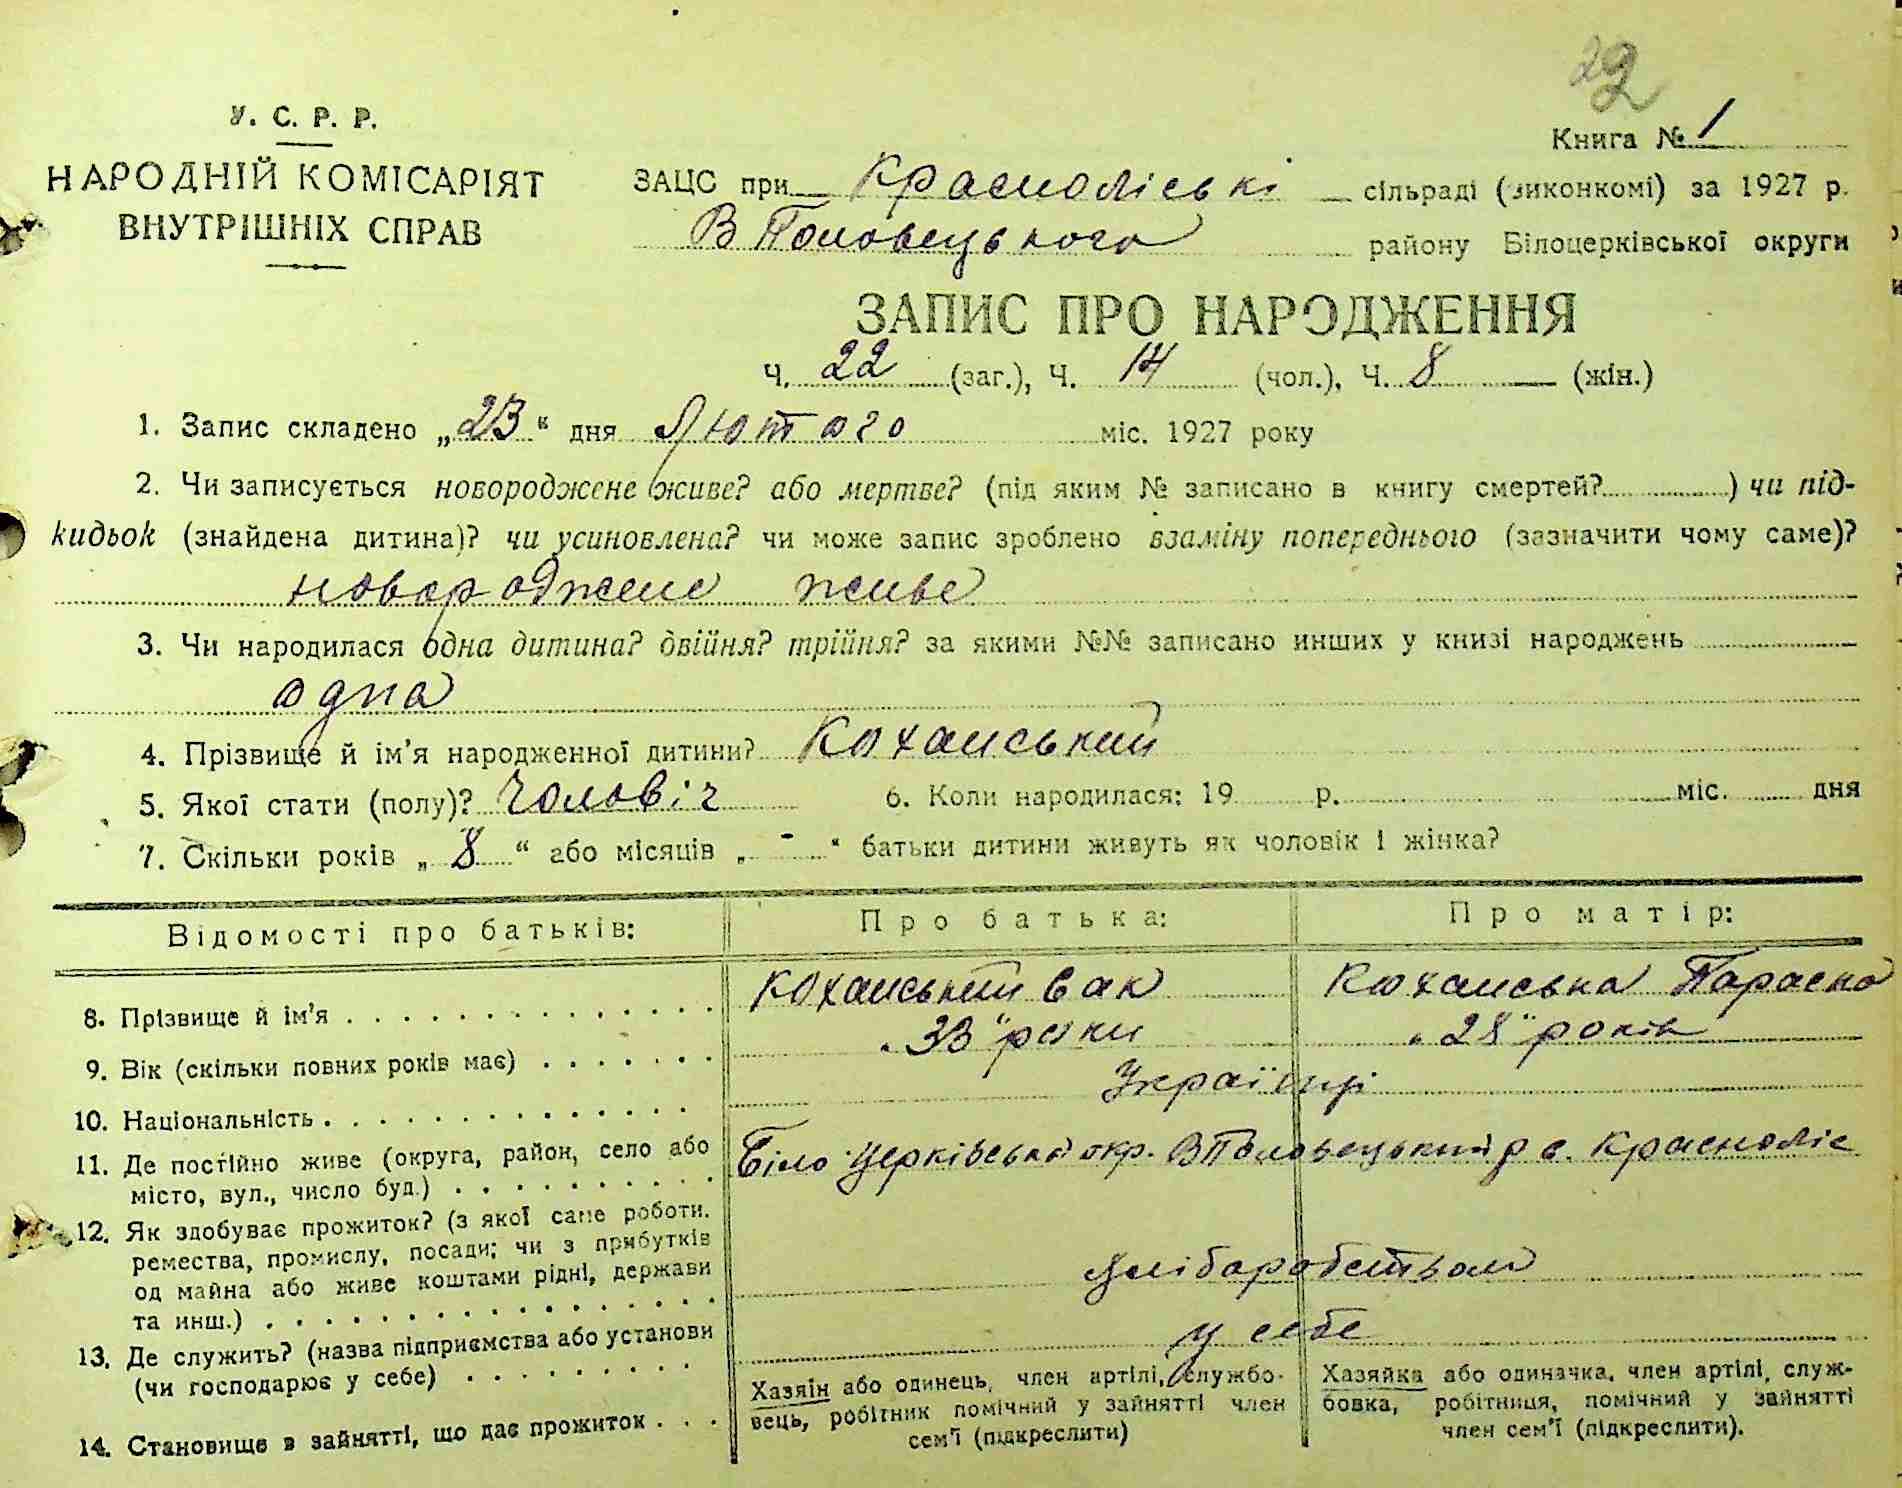 22
Книга № 1
У. С. Р. Р.
НАРОДНІЙ КОМІСАРІЯТ
ВНУТРІШНІХ СПРАВ
ЗАЦС при Красноліські сільраді (виконкомі) за 1927 р.
В Половецького району Білоцерківської округи
ЗАПИС ПРО НАРОДЖЕННЯ
Ч. 22 (заг.), Ч. 14 (чол.), Ч. 8 (жін.)
1. Запис складено „23“ дня Лютого міс. 1927 року
2. Чи записується новороджене живе? або мертве? (під яким № записано в книгу смертей? ) чи під-
кидьок (знайдена дитина)? чи усиновлена? чи може запис зроблено взаміну попереднього (зазначити чому саме)?
новороджене живе
3. Чи народилася одна дитина? двійня? трійня? за якими №№ записано инших у книзі народжень
одна
4. Прізвище й ім'я народженної дитини? Коханський
5. Якої стати (полу)? Чоловіч 6. Коли народилася: 19 р. міс. дня
7. Скільки років „8“ або місяців „-“ батьки дитини живуть як чоловік і жінка?
Відомості про батьків: Про батька: Про матір:
8. Прізвище й ім'я . . . . . . . . . . . . . . Коханський Сак Коханська Параска
9. Вік (скільки повних років має) . . . . . . . „33" роки „28" років
10. Національність . . . . . . . . . . . . . . Українці
11. Де постійно живе (округа, район, село або
місто, вул., число буд.) . . . . . . . . . . Біло Церківський окр. В Половецький р с. Краснолісе
12. Як здобуває прожиток? (з якої саме роботи.
ремества, промислу, посади; чи з прибутків
од майна або живе коштами рідні, держави
та инш.) . . . . . . . . . . . . . . . . . Хліборобством
13. Де служить? (назва підприємства або установи
(чи господарює у себе) . . . . . . . . у себе
14. Становище в зайнятті, що дає прожиток . . .
Хазяїн або одинець, член артілі, службо-
вець, робітник помічний у зайнятті член
сем'ї (підкреслити)
Хазяйка або одиначка, член артілі, служ-
бовка, робітниця, помічний у зайнятті
член сем'ї (підкреслити).